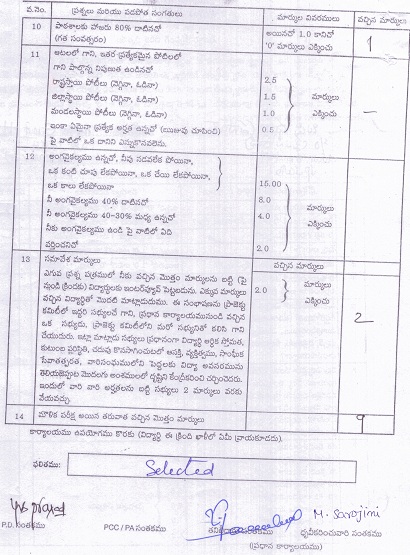 వ.నెం. ప్రశ్నలు మరియు వడపోత సంగతులు మార్కుల వివరములు వచ్చిన మార్కులు
10 పాఠశాలకు హాజరు 80% దాటినచో అయినచో 1.0 కానిచో 1
(గత సంవత్సరం) '0' మార్కులు ఎక్కించు
11 ఆటలలో గాని, ఇతర ప్రత్యేకమైన పోటీలలో
గాని పాల్గొన్న నిపుణుత ఉండినచో
రాష్ట్రస్థాయి పోటీలు (నెగ్గినా, ఓడినా) 2.5
జిల్లాస్థాయి పోటీలు (నెగ్గినా, ఓడినా) 1.5 మార్కులు –
మండలస్థాయి పోటీలు (నెగ్గినా, ఓడినా) 1.0 ఎక్కించు
ఇంకా ఏమైనా ప్రత్యేక అర్హత ఉన్నచో (ఋజువు చూపించి) 0.5
పై వాటిలో ఒక దానిని ఎన్నుకొనవలెను.
12 అంగవైకల్యము ఉన్నచో, నీవు నడవలేక పోయినా,
ఒక కంటి చూపు లేకపోయినా, ఒక చేయి లేకపోయినా,
ఒక కాలు లేకపోయినా 15.00
నీ అంగవైకల్యము 40% దాటినచో 8.0 మార్కులు
నీ అంగవైకల్యము 40-30% మధ్య ఉన్నచో 4.0 ఎక్కించు
నీకు అంగవైకల్యము ఉండి పై వాటిలో ఏది
వర్తించనిచో 2.0
13 సమావేశ మార్కులు వచ్చిన మార్కులు
ఎగువ ప్రశ్న పత్రములో నీకు వచ్చిన మొత్తం మార్కులను బట్టి (పై
నుండి క్రిందకు) విద్యార్థులకు ఇంటర్వ్యూకి పెట్టబడును. ఎక్కువ మార్కులు 2.0 మార్కులు
వచ్చిన విద్యార్థితో మొదటి మాట్లాడుదుము. ఈ సంభాషణను ప్రాజెక్టు ఎక్కించు
కమిటీలో ఇద్దరి సభ్యులచే గాని, (ప్రధాన కార్యాలయమునుండి వచ్చిన
ఒక సభ్యుడు, ప్రాజెక్టు కమిటీలోని మరో సభ్యునితో కలిసి గాని 2
చేయుదురు. ఇట్లా మాట్లాడు సభ్యులు ప్రధానంగా విద్యార్థి ఆర్థిక స్తోమత,
కుటుంబ పరిస్థితి, చదువు కొనసాగించుటలో ఆసక్తి, వ్యక్తిత్వము, సాంఘిక
సేవాతత్పరత, వారిసంఘములోని పెద్దలకు విద్యా అవసరమును
తెలియజెప్పుట మొదలగు అంశములలో దృష్టిని కేంద్రీకరించి చర్చించెదరు.
ఇందులో వారి వారి అర్హతలను బట్టి సభ్యులు 2 మార్కులు వరకు
వేయవచ్చు.
14 మౌళిక పరీక్ష అయిన తరువాత వచ్చిన మొత్తం మార్కులు 9
కార్యాలయము ఉపయోగము కొరకు (విద్యార్థి ఈ క్రింది ఖాళీలో ఏమీ వ్రాయకూడదు).
ఫలితము: Selected
M. Sarojini
P.D. సంతకము PCC / PA సంతకము సంతకము ధృవీకరించువారి సంతకము
(ప్రధాన కార్యాలయము)